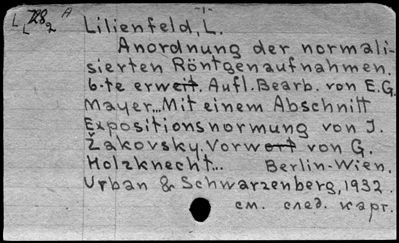 -1-
L L 728 2 A
Lilienfeld, L.
Anordnung der normali-
sierten Röntgenaufnahmen.
6-te erweit. Aufl. Bearb. von E.G.
Mayer... Mit einem Abschnitt
Expositionsnormung von J.
Žakovsky. Vorwort von G.
Holzknecht... Berlin-Wien.
Urban & Schwarzenberg, 1932.
см. след. карт.